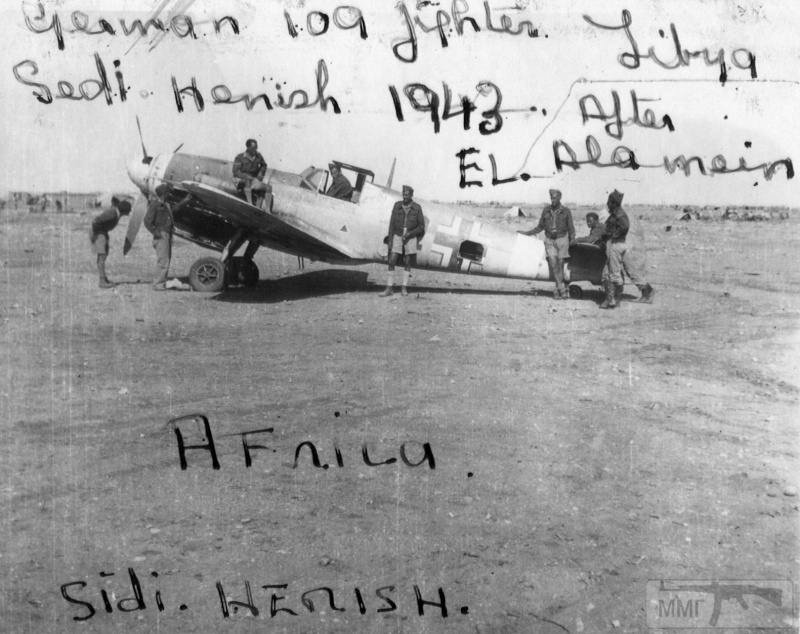 German 109 fighter. Libya
Sedi. Henish 1943. After
EL. Alamein
Africa.
Sidi. HENISH.
ММГ